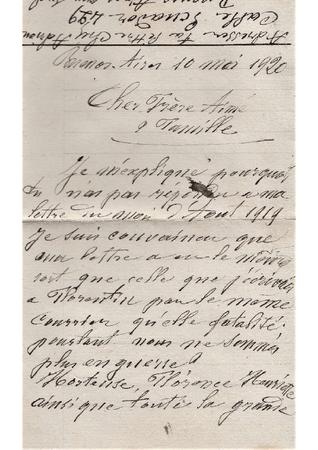 Adresser ta lettre Chez
Calle Ecuador 429
Buenos Aires 10 mai 1920
Cher Frère Aimé
& Famille
Je m'explique pourquoi
tu nas pas répondu a ma
lettre du mois d'Aout 1919
Je suis couvaincu que
ma lettre a eu le même
sort que celle que j'écrivais
a Florentin par le meme
courrier qu'elle fatalité.
pourtant nous ne sommes
plus en guerre!
Hortense, Florence Henriette
ainsi que toute la grande